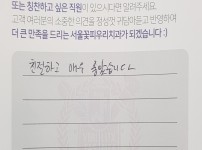 또는 칭찬하고 싶은 직원이 있으시다면 알려주세요.
고객 여러분의 소중한 의견을 정성껏 귀담아듣고 반영하여
더 큰 만족을 드리는 서울꽃피우리치과가 되겠습니다 :)
친절하고 매우 좋았습니다